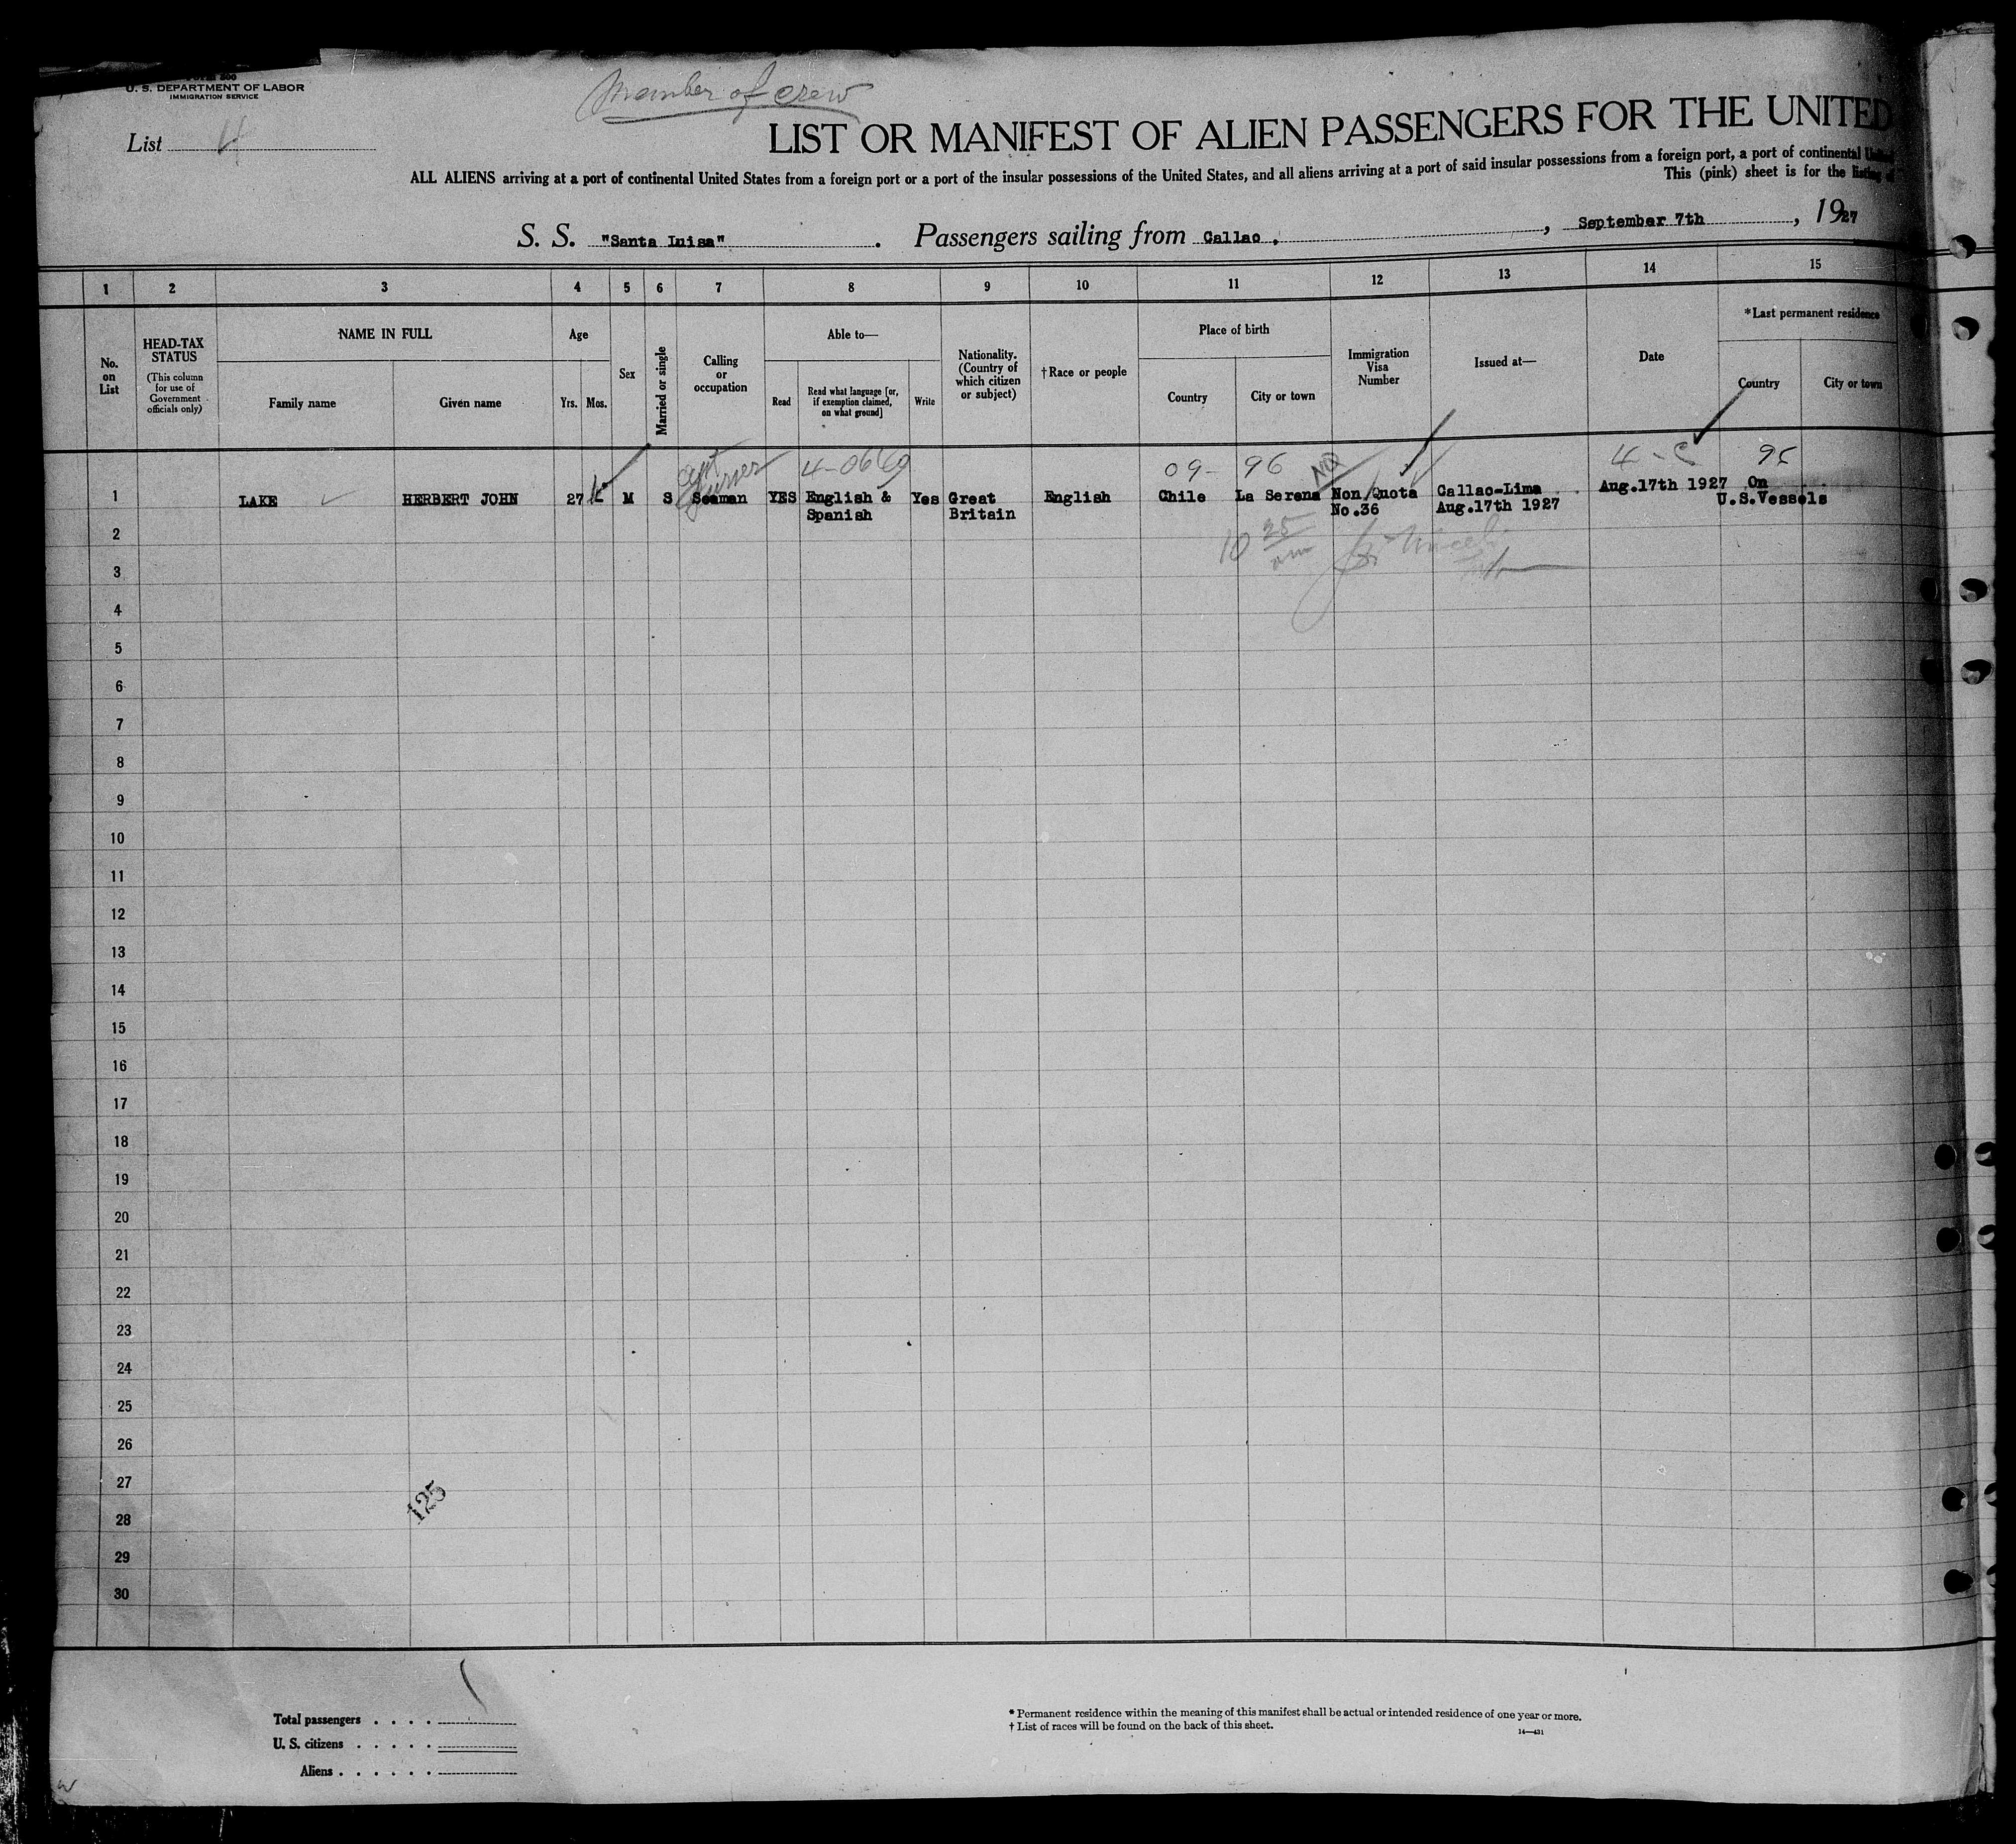 U. S. DEPARTMENT OF LABOR
IMMIGRATION SERVICE
Member of crew
List 4
LIST OR MANIFEST OF ALIEN PASSENGERS FOR THE UNITED
ALL ALIENS arriving at a port of continental United States from a foreign port or a port of the insular possessions of the United States, and all aliens arriving at a port of said insular possessions from a foreign port, a port of continental United
This (pink) sheet is for the listing of
S. S. "Santa Luisa". Passengers sailing from Callao., September 7th, 1927
1 2 3 4 5 6 7 8 9 10 11 12 13 14 15
No. on List
HEAD-TAX STATUS
(This column for use of Government officials only)
NAME IN FULL
Family name
Given name
Age
Yrs. Mos.
Sex
Married or single
Calling or occupation
Able to—
Read
Read what language [or, if exemption claimed, on what ground]
Write
Nationality. (Country of which citizen or subject)
†Race or people
Place of birth
Country
City or town
Immigration Visa Number
Issued at—
Date
*Last permanent residence
Country
City or town
09- 96 NQ 95
1 LAKE HERBERT JOHN 27 M S Seaman YES English & Yes Great English Chile La Serena Non Quota Callao-Lima Aug.17th 1927 On
Spanish Britain No.36 Aug.17th 1927 U.S.Vessels
2
10 35 am
3
4
5
6
7
8
9
10
11
12
13
14
15
16
17
18
19
20
21
22
23
24
25
26
27
125
28
29
30
Total passengers . . . .
U. S. citizens . . . . .
Aliens . . . . . .
* Permanent residence within the meaning of this manifest shall be actual or intended residence of one year or more.
† List of races will be found on the back of this sheet.
14—431